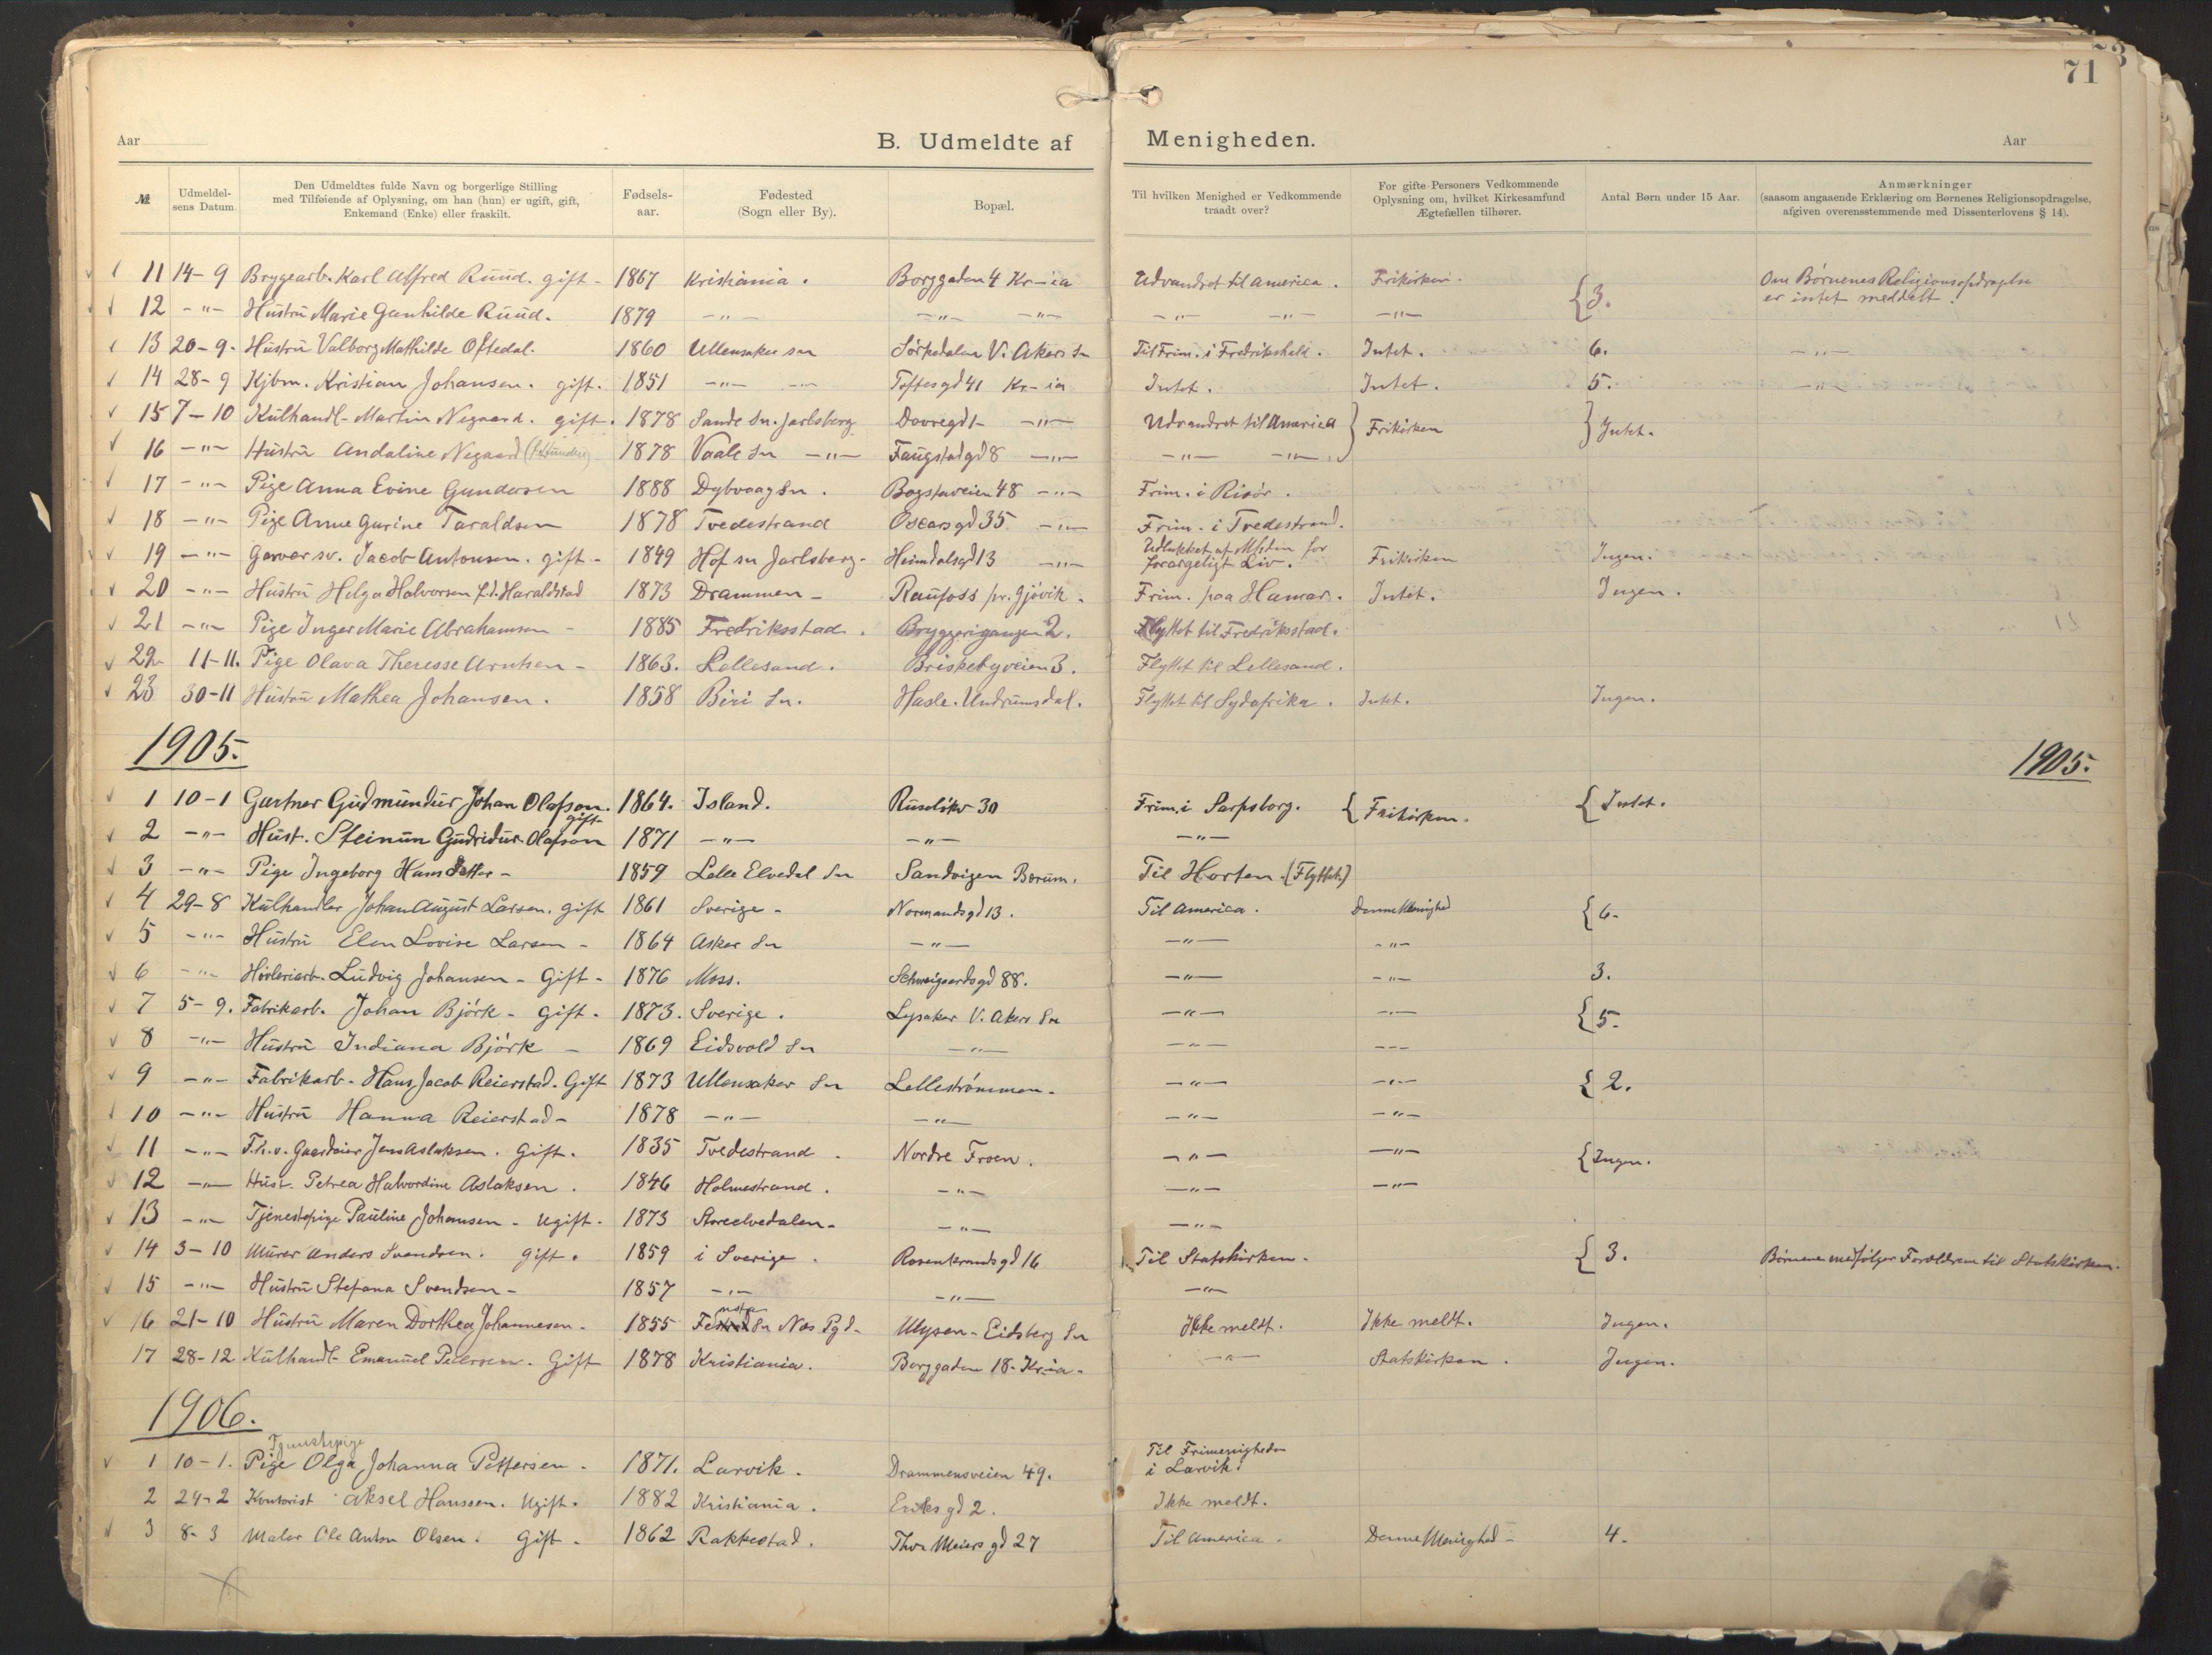 71
Aar
B. Udmeldte af Menigheden.
Aar
№ Udmeldelsens Datum. Den Udmeldtes fulde Navn og borgerlige Stilling med Tilføiende af Oplysning, om han (hun) er ugift, gift, Enkemand (Enke) eller fraskilt. Fødselsaar. Fødested (Sogn eller By). Bopæl. Til hvilken Menighed er Vedkommende traadt over? For gifte Personers Vedkommende Oplysning om, hvilket Kirkesamfund Ægtefællen tilhører. Antal Børn under 15 Aar. Anmærkninger (saasom angaaende Erklæring om Børnenes Religionsopdragelse, afgiven overensstemmende med Dissenterlovens § 14).
11 14-9 Brygearb. Karl Alfred Ruud. gift- 1867 Kristiania. Borggaden 4 Kr-ia Udvandret til America. Frikirken. {3. Om Børnenes Religionsopdragelse er intet meddelt.
12 -"- Hustru Marie Gunhilde Ruud. 1879 -"- -"- -"- -"- -"- -"-
13 20-9. Hustru Valborg Mathilde Oftedal. 1860 Ullensaker sn Sørkedalen V. Akers Sn Til Frim. i Fredrikshald. Intet. 6. -"-
14 28-9 Kjbm. Kristian Johansen. gift. 1851 -"- -"- Toftesgd 41 Kr-ia Intet. Intet. 5. -"-
15 7-10 Kulhandl- Martin Negaard. gift. 1878 Sande Sn. Jarlsberg Dovregd 1- -"- Udvandret til America } Frikirken } Intet.
16 -"- Hustru Andaline Negaard 1878 Vaale Sn -"- Faugstadgd 8 -"- -"- -"-
17 -"- Pige Anna Evine Gundersen 1888 Dybvaag Sn. Bogstaveien 48 -"- Frim. i Risør.
18 -"- Pige Anne Gurine Taraldsen 1878 Tvedestrand Oscarsgd 35 -"- Frim. i Tvedestrand.
19 -"- Garver sv. Jacob Antonsen. gift- 1849 Hof sn Jarlsberg- Heimdalsgd 13 -"- Udlukket af Mhden for forargeligt Liv. Frikirken Ingen.
20 -"- Hustru Helga Halvorsen f.d. Haraldstad 1873 Drammen- Raufoss pr. Gjövik. Frim. paa Hamar. Intet. Ingen.
21 -"- Pige Inger Marie Abrahamsen- 1885 Fredriksstad. Bryggerigangen 2. Flyttet til Fredriksstad.
22 11-11. Pige Olava Theresse Arntsen- 1863. Lellesand. Briskebyveien 3. Flyttet til Lellesand.
23 30-11 Hustru Mathea Johansen. 1858 Biri Sn. Hasle. Undrumsdal. Flyttet til Sydafrika. Intet. Ingen.
1905.
1905.
1 10-1 Gartner Gudmundur Johan Olafson. gift- 1864. Island. Ruseløkv 30 Frim. i Sarpsborg. { Frikirken. { Intet.
2 -"- Hust. Steinun Gudridur Olafson 1871 -"- -"- -"-
3 -"- Pige Ingeborg Hansdatter- 1859 Lelle Elvedal Sn Sandvigen Bærum. Til Horten. (Flyttet)
4 29-8 Kulhandler Johan August Larsen. gift 1861 Sverige- Normandsgd 13. Til America. Denne Menighed {6-
5 -"- Hustru Elen Lovise Larsen- 1864 Asker Sn -"- -"- -"-
6 -"- Høvleriarb. Ludvig Johansen- Gift- 1876 Moss. Schweigaardsgd 88. -"- -"- 3.
7 5-9. Fabrikarb. Johan Björk- gift. 1873. Sverige. Lysaker V. Akers Sn -"- -"- {5-
8 -"- Hustru Indiana Björk- 1869 Eidsvold Sn -"- -"- -"-
9 -"- Fabrikarb- Hans Jacob Reierstad. Gift 1873 Ullensaker Sn Lellestrømmen- -"- -"- {2.
10 -"- Hustru Hanna Reierstad- 1878 -"- -"- -"- -"-
11 -"- F.h.v. Gaardeier Jens Aslaksen. Gift. 1835 Tvedestrand. Nordre Froen. -"- -"- {Ingen.
12 -"- Hust. Petrea Halvordine Aslaksen. 1846 Holmestrand. -"- -"- -"-
13 -"- Tjenestepige Pauline Johansen- Ugift- 1873 Storelvedalen- -"- -"-
14 3-10 Murer Anders Svendsen. gift. 1859 i Sverige. Rosenkrandsgd 16 Til Statskirken- {3. Børnene medfølger Forældrene til Statskirken.
15 -"- Hustru Stefana Svendsen- 1857 -"- -"- -"-
16 21-10 Hustru Maren Dorthea Johannesen- 1855 Sn Næs Pgd- Mysen- Eidsberg Sn Ikke meldt. Ikke meldt. Ingen.
17 28-12 Kulhandl- Emanuel Petersen. Gift 1878 Kristiania. Borggaden 18- Kr-ia- -"- Statskirken. Ingen.
1906.
Tjenestepige
1 10-1. Pige Olga Johanna Pettersen. 1871. Larvik. Drammensveien 49. Til Frimenigheden i Larvik.
2 24-2 Kontorist Aksel Hanssen. Ugift. 1882 Kristiania. Eriksgd 2. Ikke meldt.
3 8-3 Maler Ole Anton Olsen. Gift- 1862 Rakkestad. Thor Meiers gd 27 Til America. Denne Menighed- 4-